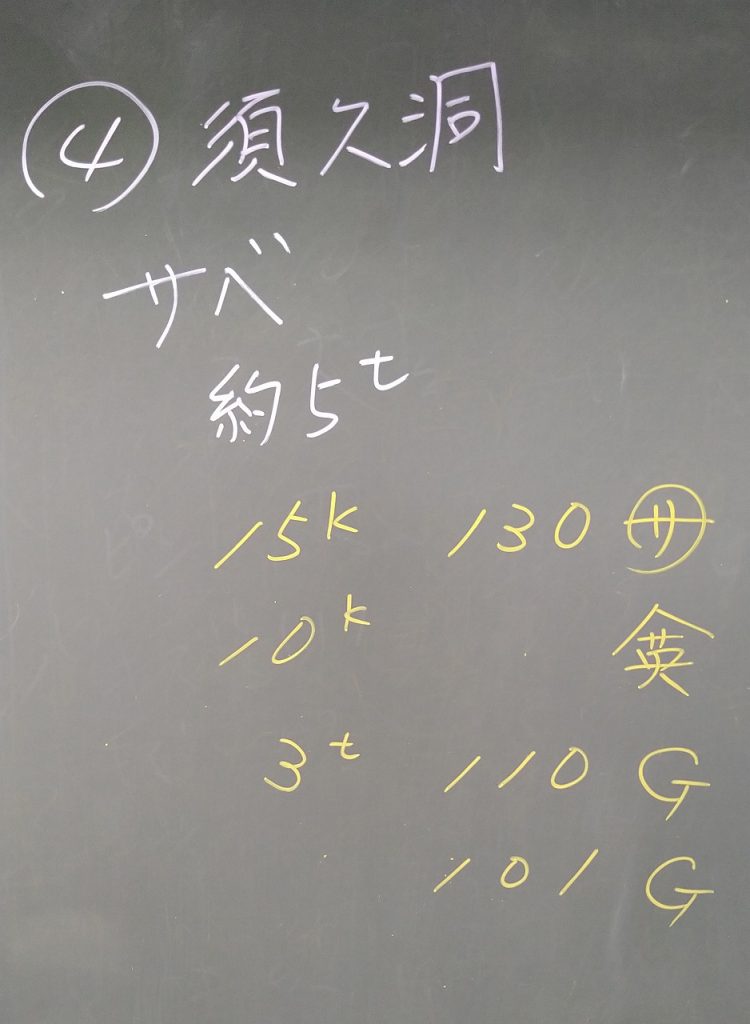 ④ 須久洞
サベ
約5t
15k 130 ㋚
10k 英
3t 110 G
101 G